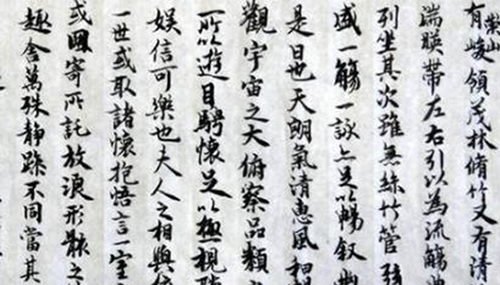 有崇峻領茂林脩竹又有清
湍暎帶左右引以為流觴曲
列坐其次雖無絲竹管弦
盛一觴一詠亦足以暢叙幽
是日也天朗氣清惠風和暢
觀宇宙之大俯察品類之
所以遊目騁懷足以極視聽
娛信可樂也夫人之相與俯
一世或取諸懷抱悟言一室
或因寄所託放浪形骸之
趣舍萬殊靜躁不同當其